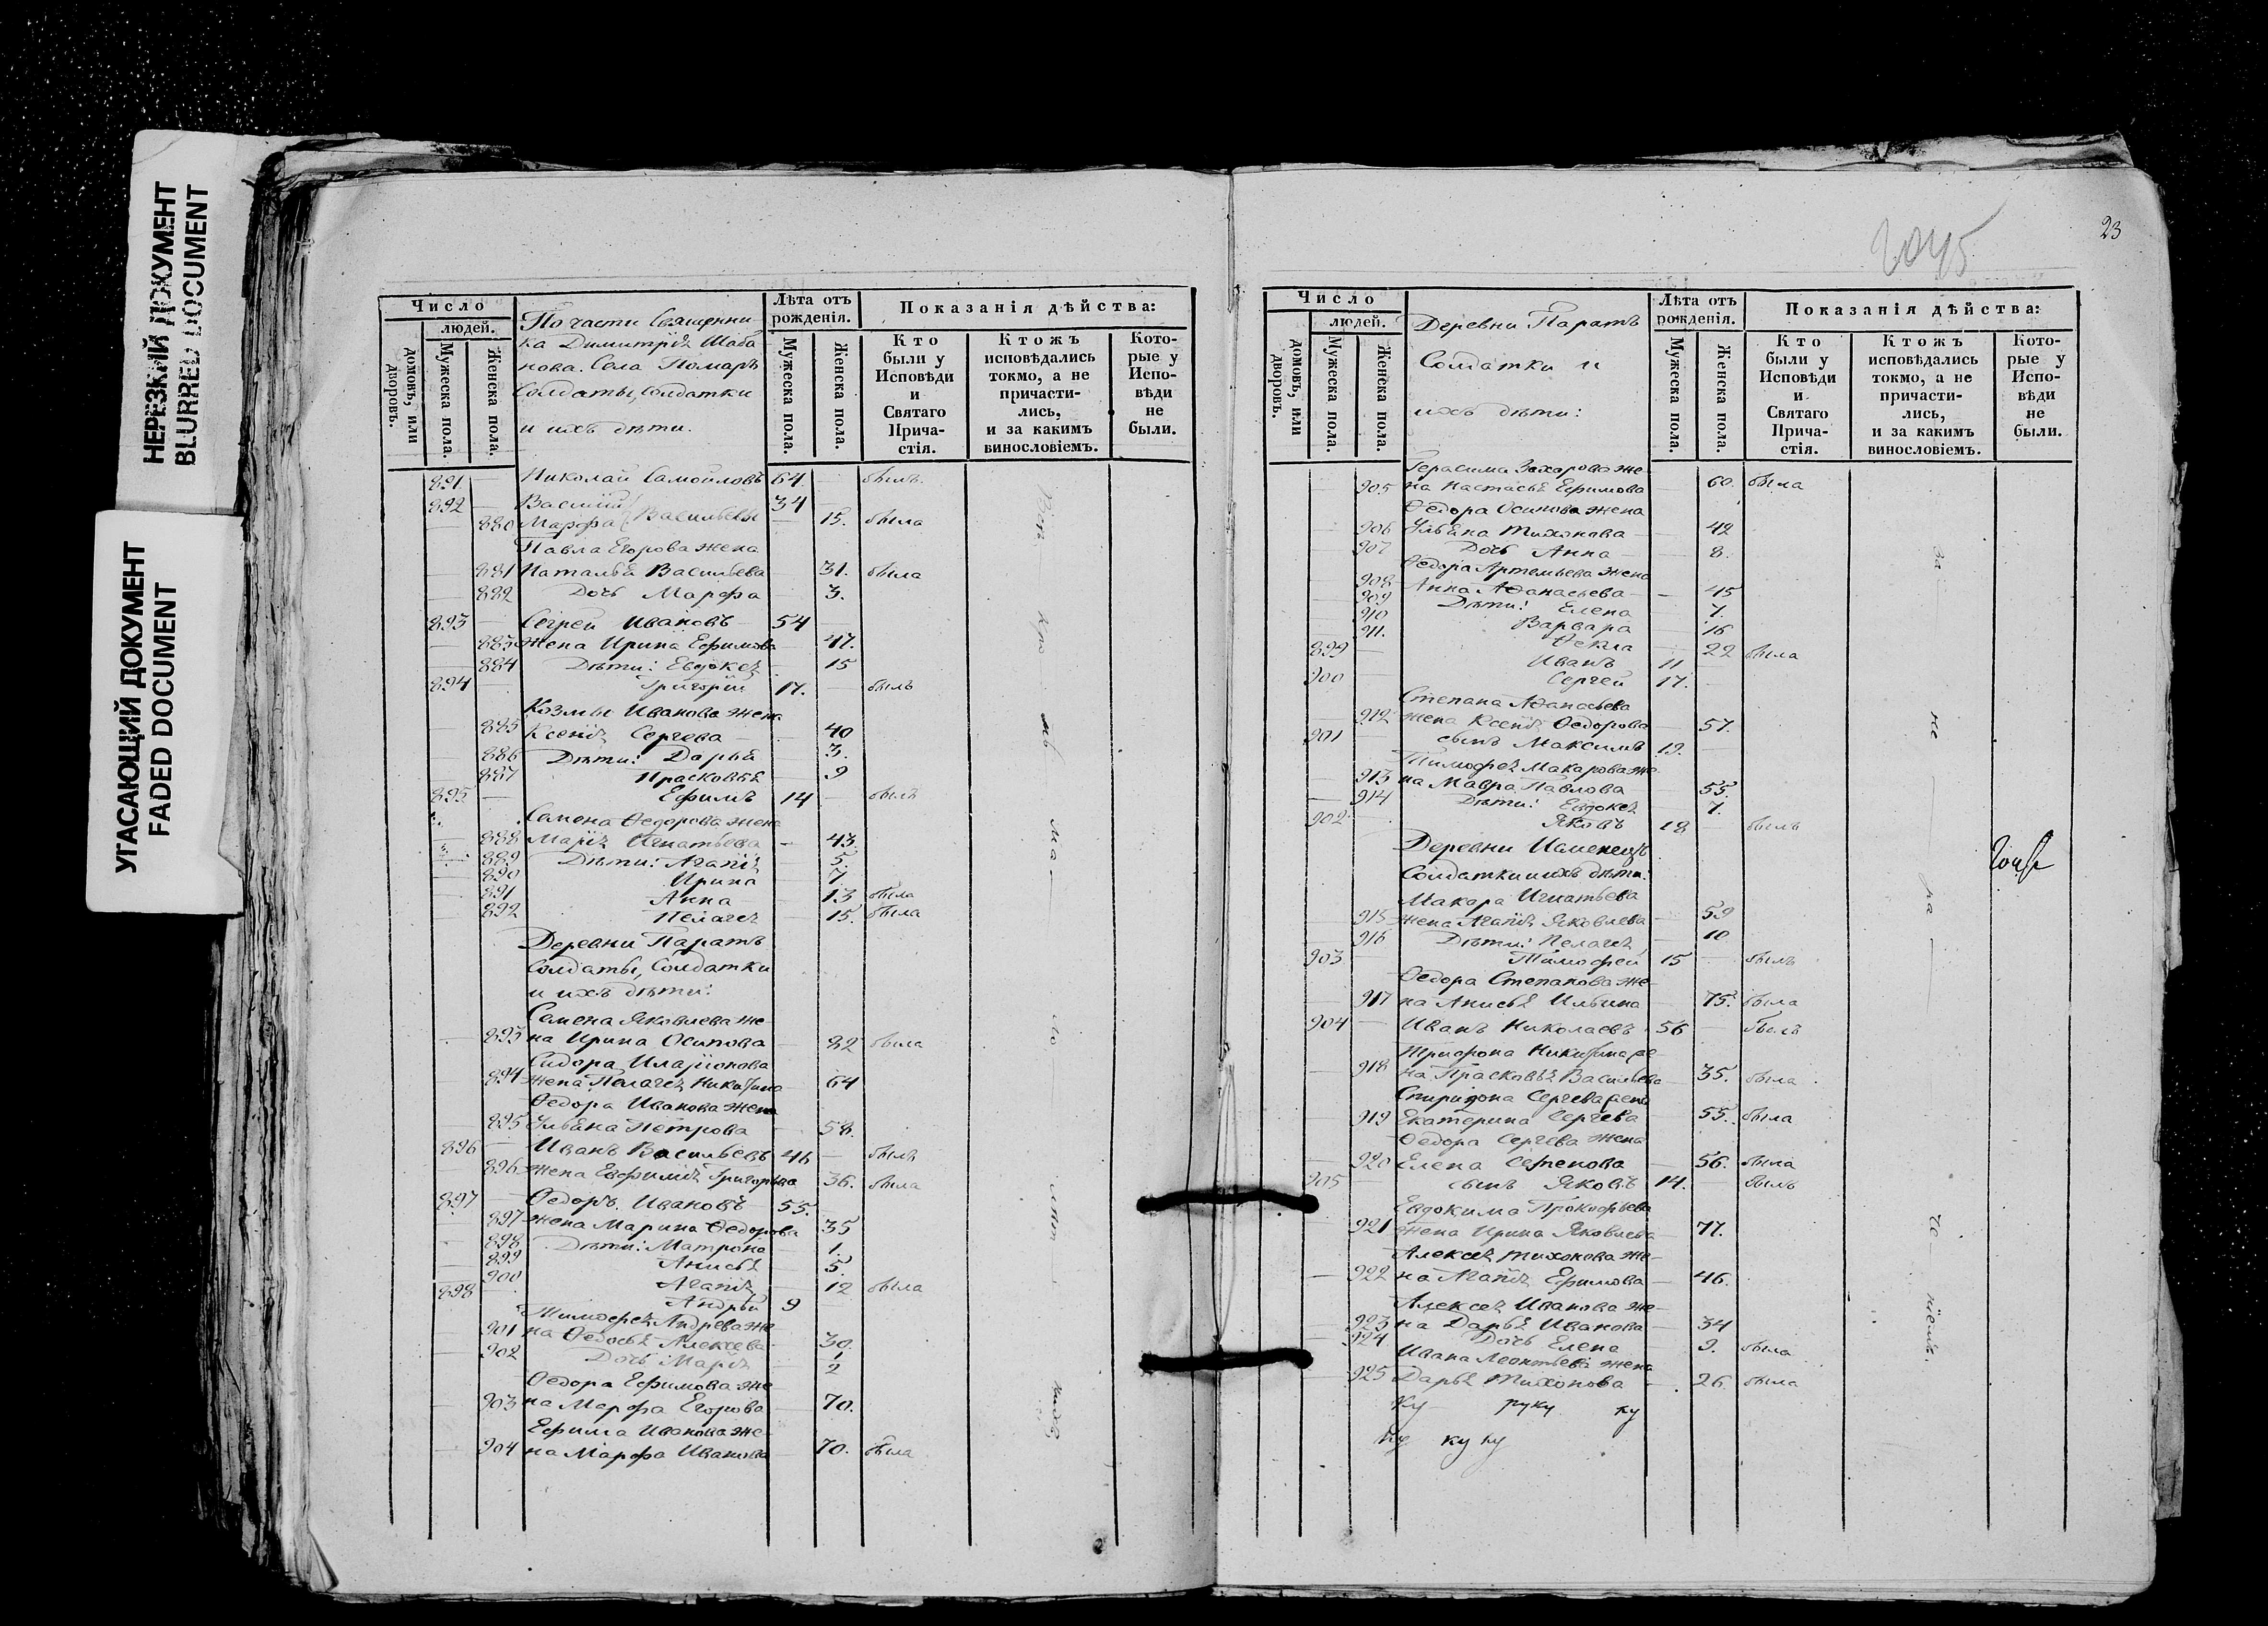 НЕРЕЗКИЙ ДОКУМЕНТ
BLURRED DOCUMENT
УГАСАЮЩИЙ ДОКУМЕНТ
FADED DOCUMENT
Число
людей.
домовъ, или дворовъ.
Мужеска пола.
Женска пола.
По части Священни
ка Димитрія Шаба
нова. Села Помаръ
Солдаты, солдатки
и ихъ дѣти.
Лѣта отъ рожденія.
Мужеска пола.
Женска пола.
Показанія дѣйства:
Кто были у Исповѣди и Святаго Прича-стія.
Ктожъ исповѣдались токмо, а не причасти-лись, и за какимъ винословіемъ.
Кото-рые у Испо-вѣди не были.
891 — Николай Самойловъ 64. — былъ
892 Василій 34
880 Марфа Васильевы — 15. была
Павла Егорова жена
881 Наталья Васильева 31. была
882 Дочь Марфа 3.
893 — Сергѣй Ивановъ 54
883 жена Ирина Ефимова 47.
884 Дѣти: Евдокея 15
894 Григорій 17. — былъ
Козмы Иванова жена
885 Ксенія Сергева — 40
886 Дѣти: Дарья 3.
887 Прасковья 9
895 — Ефимъ 14 — былъ
Семена Ѳедорова жена
888 Марія Игнатьева — 43.
889 Дѣти: Агапія 5.
890 Ирина 7.
891 Анна 13 была
892 Пелагея 15. была
Деревни Паратъ
Солдаты, Солдатки
и ихъ дѣти:
Семена Яковлева же
893 на Ирина Осипова — 82 была
Сидора Иларіонова
894 жена Пелагея Никитина 64
Ѳедора Иванова жена
895 Ульяна Петрова 58.
896 — Иванъ Васильевъ 46 — былъ
896 жена Евфимія Григорьева 36. была
897 — Ѳедоръ Ивановъ 55.
897 жена Марина Ѳедорова 35
898 Дѣти: Матрона 1.
899 Анисья 5.
900 Агапія 12 была
898 — Андрей 9
Тимофея Андрева же
901 на Ѳедосья Алексева 30.
902 Дочь Марія 1/2
Ѳедора Ефимова же
903 на Марфа Егорова 70.
Ефима Иванова же-
904 на Марфа Иванова 70. была
23
Число
людей.
домовъ, или дворовъ.
Мужеска пола.
Женска пола.
Деревни Паратъ
Солдатки и
ихъ дѣти:
Лѣта отъ рожденія.
Мужеска пола.
Женска пола.
Показанія дѣйства:
Кто были у Исповѣди и Святаго Прича-стія.
Ктожъ исповѣдались токмо, а не причасти-лись, и за какимъ винословіемъ.
Кото-рые у Испо-вѣди не были.
Герасима Захарова же-
905 на Настасья Ефимова 60. была
Ѳедора Осипова жена
906 Ульяна Тихонова — 42
907 Дочь Анна — 8.
Ѳедора Артемьева жена
908 Анна Аѳанасьева — 45
909 Дѣти: Елена 7.
910 Варвара 16
911. Ѳекла 22 была
899 — Иванъ 11
900 — Сергей 17. —
Степана Аѳанасьева
912 жена Ксенія Ѳедорова 57.
901 сынъ Максимъ 12. —
Тимофея Макарова же
913 на Мавра Павлова 55.
914 Дѣти: Евдокея 7.
902 Яковъ 18 — былъ
Деревни Иаменецъ
Солдатки и ихъ дѣти:
Макара Игнатьева
915 жена Агапія Яковлева 59
916 Дѣти: Пелагея 10
903 — Тимофей 15 — былъ
Ѳедора Степанова же-
917 на Анисья Ильина 75. была
904 — Иванъ Николаевъ 56 — былъ
Трифона Никитина же
918 на Прасковья Васильева 35. была
Спиридона Сергева жена
919 Екатерина Сергева 55. была
Ѳедора Сергева жена
920 Елена Семенова 56. была
905 — сынъ Яковъ 14. — былъ
Евдокима Прокофьева
921 жена Ирина Яковлева 77.
Алексея Тихонова же-
922 на Агапія Ефимова 46.
Алексея Иванова же-
923 на Дарья Иванова — 34
924 Дочь Елена 9. была
Ивана Леонтьева жена
925 Дарья Тихонова 26 была
ку руку ку
ку ку ку